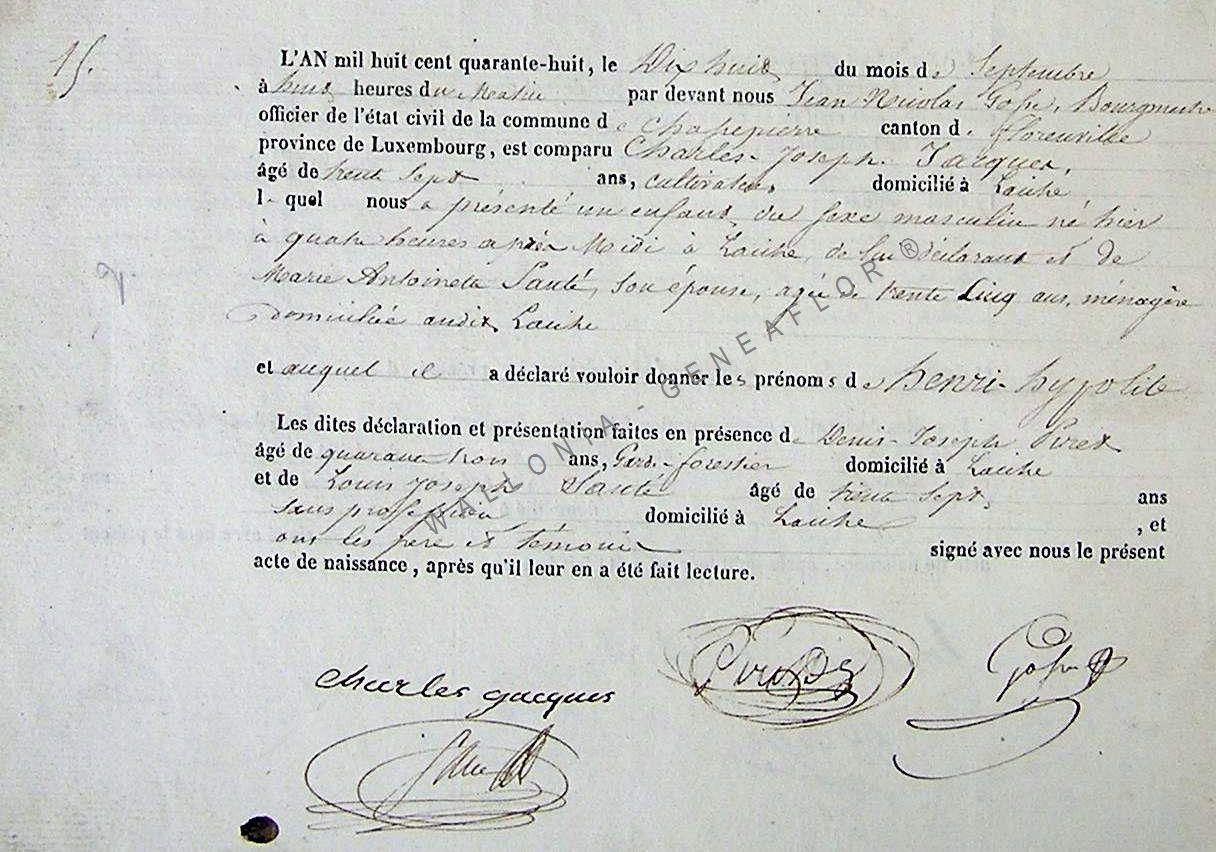 15.
L'AN mil huit cent quarante-huit, le Dix huit du mois de Septembre
à huit heures du Matin par devant nous Jean Nicolas Gofse, Bourgmestre
officier de l'état civil de la commune de chassepierre canton d. florenville
province de Luxembourg, est comparu Charles-Joseph Jacques,
âgé de trente sept ans, cultivateur domicilié à Laiche
l- quel nous a présenté un enfant du sexe masculin né hier
à quatre heures après Midi à Laiche, de lui déclarant et de
Marie Antoinette Santé, son épouse, agée de trente Cinq ans, ménagère
domiciliée audit Laiche
et auquel il a déclaré vouloir donner les prénoms de henri-hypolite
Les dites déclaration et présentation faites en présence de Denis-Joseph Piret
âgé de quarante trois ans, Garde-forestier domicilié à Laiche
et de Louis Joseph Santé âgé de trente sept ans
sans profession domicilié à Laiche , et
ont les père et témoins signé avec nous le présent
acte de naissance, après qu'il leur en a été fait lecture.
Charles Jacques
WALLONIA - GENEAFLOR ®